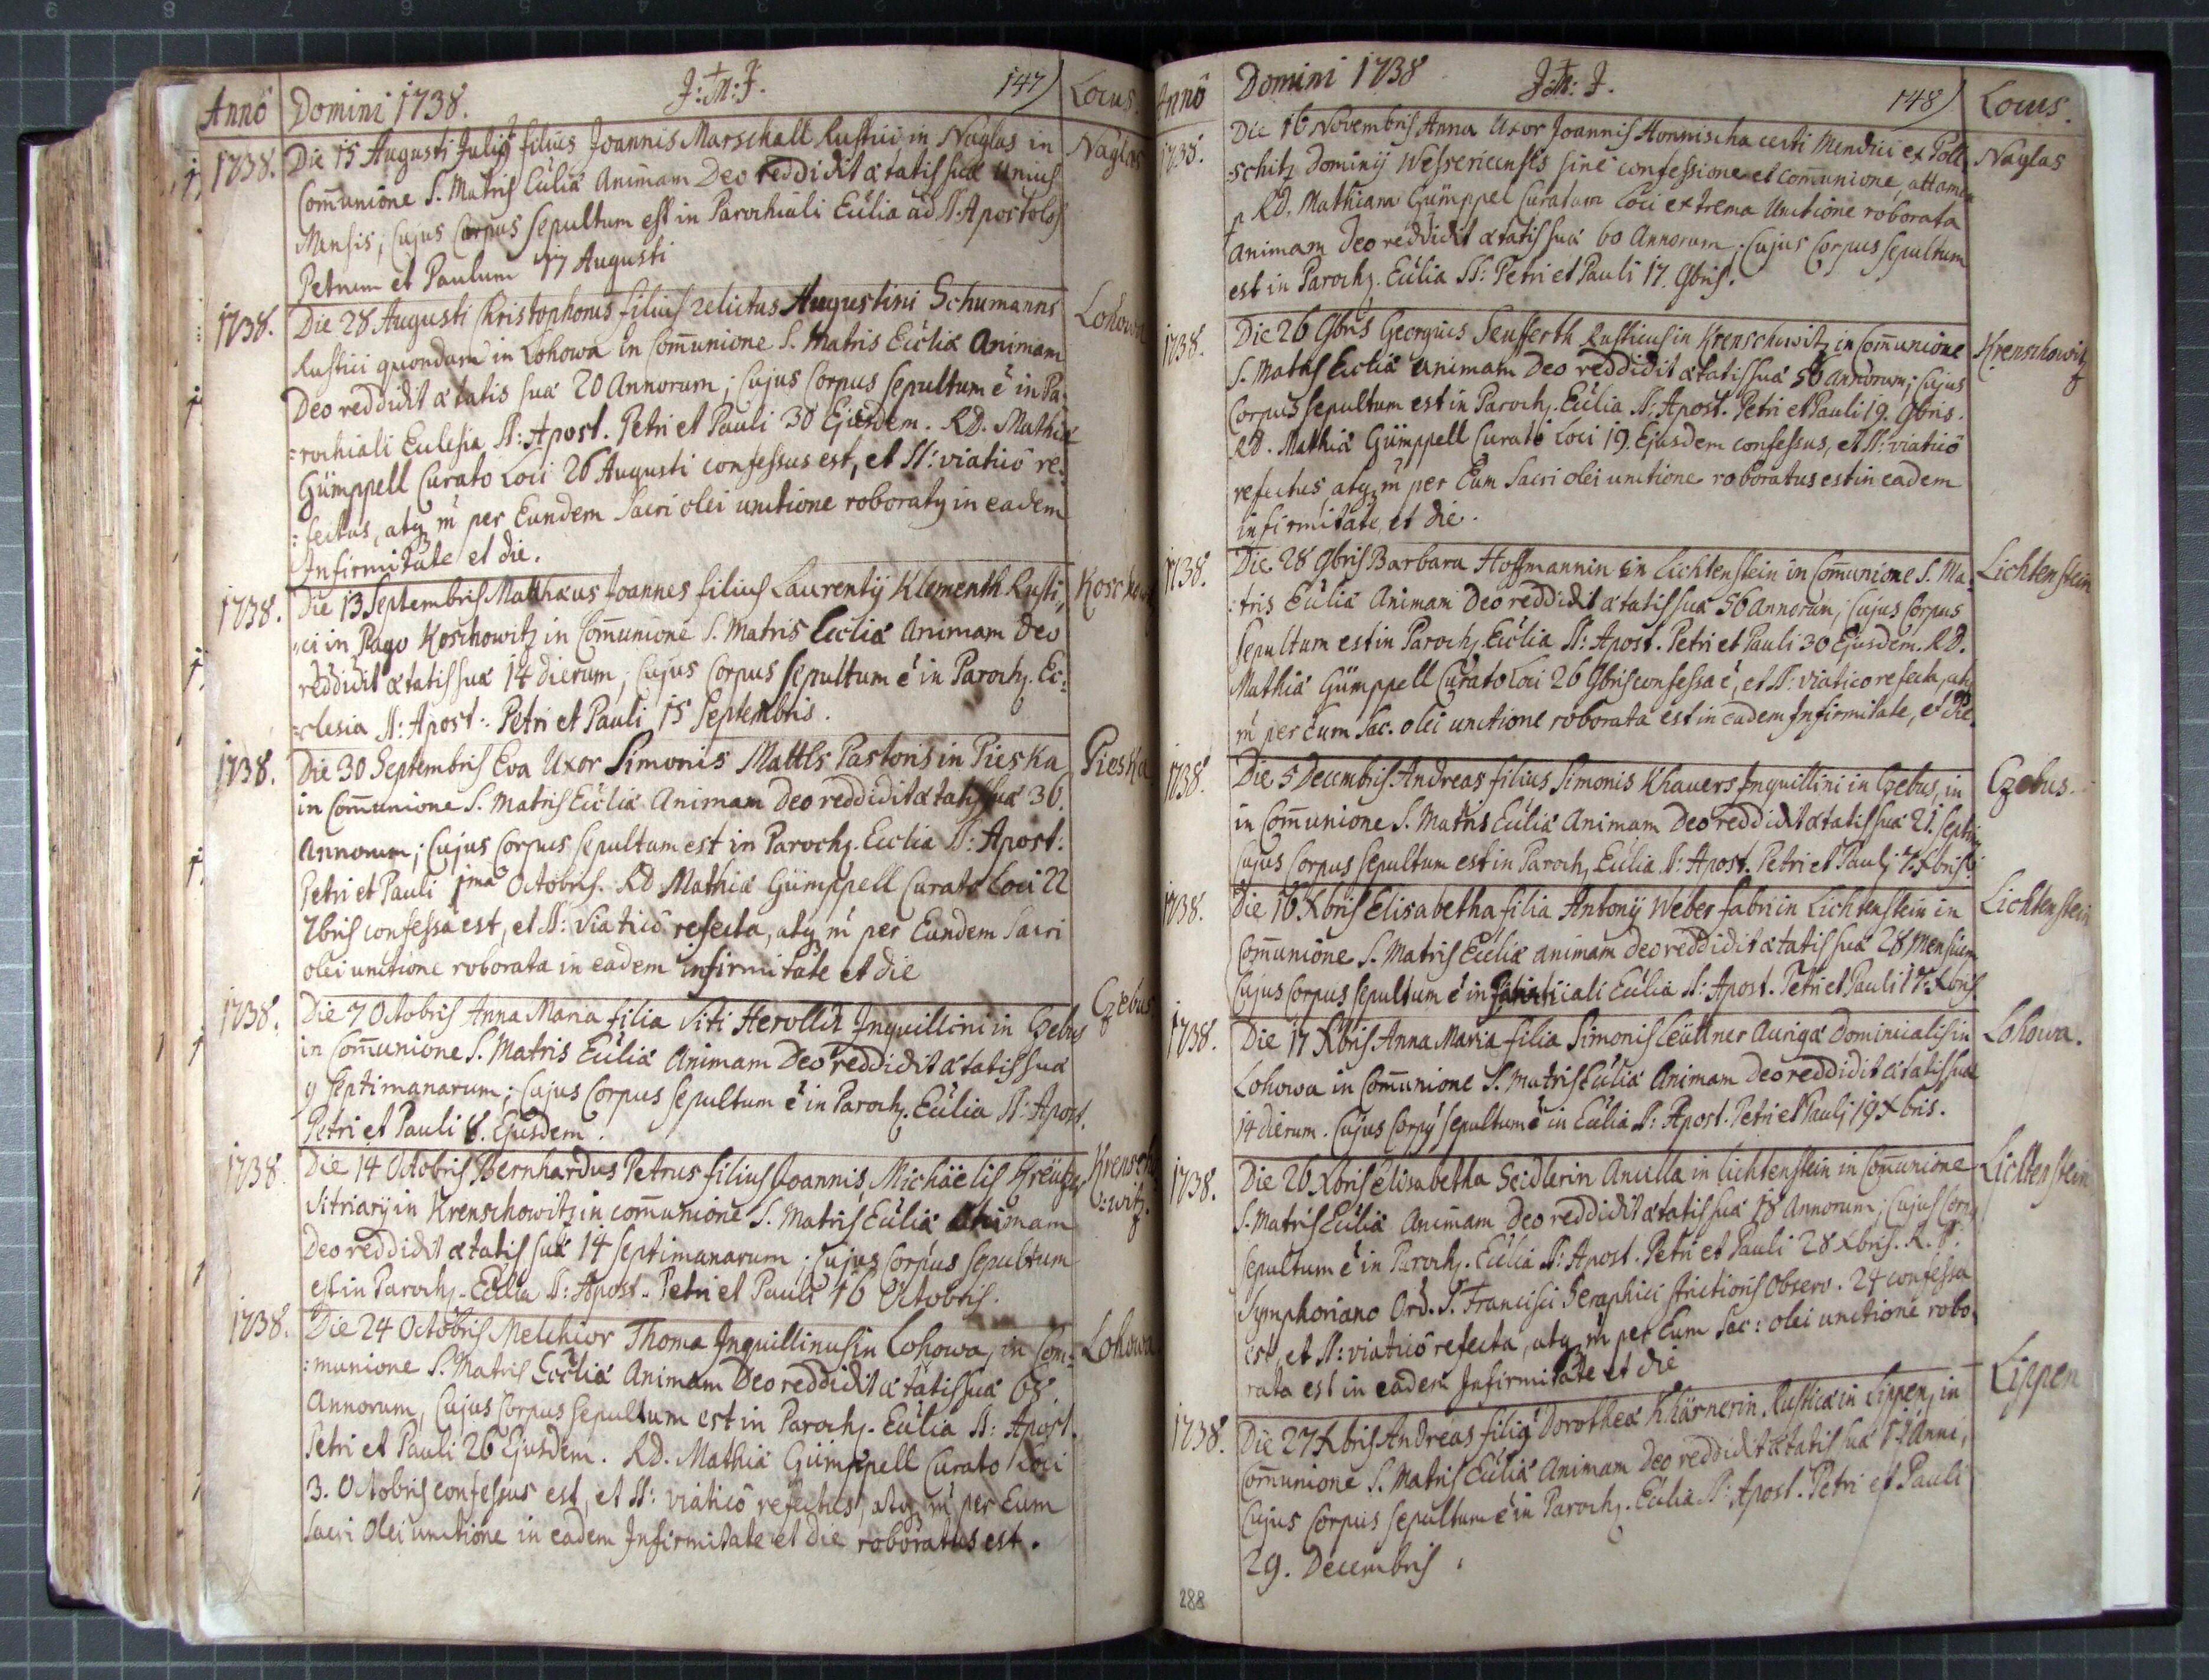 Anno Domini 1738. J:M:J. 147) Locus.
1738. Die 15 Augusti Julig filius Joannis Marschall Rustici in Naglas in Naglas
Com̄unione S. Matris Ecclia Animam Deo reddidit ætatis suæ unius
Mensis; Cujus Corpus sepultum est in Parochiali Ecclia ad SS. Apostolos
Petrum et Paulum 17 Augusti
1738. Die 28 Augusti Christophorus filius relictus Augustini Schumanns Lohowa
Rustici quondam in Lohowa in Com̄unione S. Matris Ecclia Animam
Deo reddidit ætatis suæ 20 Annorum; Cujus Corpus sepultum ē in Pa:
:rochiali Ecclesia SS: Apost. Petri et Pauli 30 Ejusdem. RD. Mathiæ
Gümppell Curato Loci 26 Augusti confessus est, et SS: viaticô re:
:fectus, atq m̄ per Eundem Sacri olei unctione roboratg in eadem
Infirmitate et die.
1738. Die 13 Septembris Matthæus Joannes filius Laurentij Klementh Rusti:
:ci in Pago Koschowitz in Com̄unione S. Matris Ecclia Animam Deo
reddidit ætatis suæ 14 dierum; Cujus Corpus sepultum ē in Paroch. Ec:
:clesia SS: Apost: Petri et Pauli 15 Septembris.
1738. Die 30 Septembris Eva Uxor Simonis Mattls Pastoris in Pieska Pieska
in Com̄unione S. Matris Ecclia Animam Deo reddidit ætatis suæ 36.
Annorum; Cujus Corpus sepultum est in Paroch. Ecclia SS: Apost:
Petri et Pauli 1ma Octobris. RD Mathiæ Gümppell Curato Loci 22
7bris confessa est, et SS: Viaticô refecta, atq m̄ per Eundem Sacri
olei unctione roborata in eadem infirmitate et die
1738. Die 7 Octobris Anna Maria filia Viti Herolldt Inquillini in Czebus Czebus
in Com̄unione S. Matris Ecclia Animam Deo reddidit ætatis suæ
9 Septimanarum; Cujus Corpus sepultum ē in Paroch. Ecclia SS: Apost.
Petri et Pauli 8. Ejusdem.
1738. Die 14 Octobris Bernhardus Petrus filius Joannis Michäelis Krensch
Vitriarij in Krenschowitz in com̄unione S. Matris Ecclia Animam :witz.
Deo reddidit ætatis suæ 14 septimanarum; Cujus Corpus sepultum
est in Paroch. Ecclia SS: Apost. Petri et Pauli 16 Octobris.
1738. Die 24 Octobris Melchior Thoma Inquillinus in Lohowa, in Com: Lohowa
:munione S. Matris Ecclia Animam Deo reddidit ætatis suæ 68.
Annorum, Cujus Corpus sepultum est in Paroch. Ecclia SS: Apost.
Petri et Pauli 26 Ejusdem. RD. Mathiæ Gümppell Curato Loci
3. Octobris confessus est, et SS: viaticô refectus, atq m̄ per Eum
Sacri Olei unctione in eadem Infirmitate et die roboratus est.
Anno Domini 1738 J:M:J. 148) Locus.
1738. Die 16 Novembris Anna Uxor Joannis Honnischa certi Mendici ex Poll: Naglas
:schitz Dominij Wessericensis sine confessione et com̄unione, attamen
p RD. Mathiam Gümppel Curatum Loci extrema Unctione roborata
animam Deo reddidit ætatis suæ 60 Annorum; Cujus Corpus sepultum
est in Paroch. Ecclia SS: Petri et Pauli 17. 9bris.
1738. Die 26 9bris Georgius Seufferth Rusticus in Krenschowitz in Com̄unione Krenschowitz
S. Matris Ecclia animam Deo reddidit ætatis suæ 50 annorum; Cujus
Corpus sepultum est in Paroch. Ecclia SS: Apost. Petri et Pauli 19. 9bris.
RD. Mathiæ Gümppell Curato Loci 19. Ejusdem confessus, et SS: viaticô
refectus, atq m̄ per Eum Sacri olei unctione roboratus est in eadem
infirmitate, et die.
1738. Die 28 9bris Barbara Hoffmannin in Lichtenstein in Com̄unione S. Ma: Lichtenstein
:tris Ecclia Animam Deo reddidit ætatis suæ 56 annorum; Cujus Corpus
sepultum est in Paroch. Ecclia SS: Apost. Petri et Pauli 30 Ejusdem. RD.
Mathiæ Gümppell Curato Loci 26 9bris confessa ē, et SS: viatico refecta, atq
m̄ per eum Sac. olei unctione roborata est in eadem Infirmitate, et Die
1738. Die 5 Decembris Andreas filius Simonis Khavers Inquillini in Czebus, in Czebus.
in Com̄unione S. Matris Ecclia Animam Deo reddidit ætatis suæ 21. Septim
Cujus Corpus sepultum est in Paroch. Ecclia SS: Apost. Petri et Pauli 7. Xbris.
1738. Die 16 Xbris Elisabetha filia Antonij Weber fabri in Lichtenstein in Lichtenstein
Com̄unione S. Matris Ecclia animam Deo reddidit ætatis suæ 28 Mensium
Cujus Corpus sepultum ē in Parochiali Ecclia SS: Apost. Petri et Pauli 17. Xbris
1738. Die 17 Xbris Anna Maria filia Simonis Leüttner Aurigæ Dominicalis in Lohowa.
Lohowa in Com̄unione S. Matris Ecclia Animam Deo reddidit ætatis suæ
14 dierum. Cujus Corpg sepultum ē in Ecclia SS: Apost. Petri et Pauli 19 Xbris.
1738. Die 26 Xbris Elisabetha Seidlerin Ancilla in Lichtenstein in Com̄unione Lichtenstein
S. Matris Ecclia Animam Deo reddidit ætatis suæ 18 Annorum; Cujus Corp
sepultum ē in Paroch. Ecclia SS: Apost. Petri et Pauli 28 Xbris. R. P.
Symphoriano Ord. S. Francisci Seraphici strictioris Observ. 24 confessa
est, et SS: viaticô refecta, atq m̄ per Eum Sac: olei unctione robo:
rata est in eadem Infirmitate et die
1738. Die 27 Xbris Andreas filig Dorotheæ Khärnerin Rusticæ in Lippen, in Lippen
Com̄unione S. Matris Ecclia Animam Deo reddidit ætatis suæ Anni,
Cujus Corpus sepultum ē in Paroch. Ecclia SS: Apost. Petri et Pauli
29. Decembris.
288